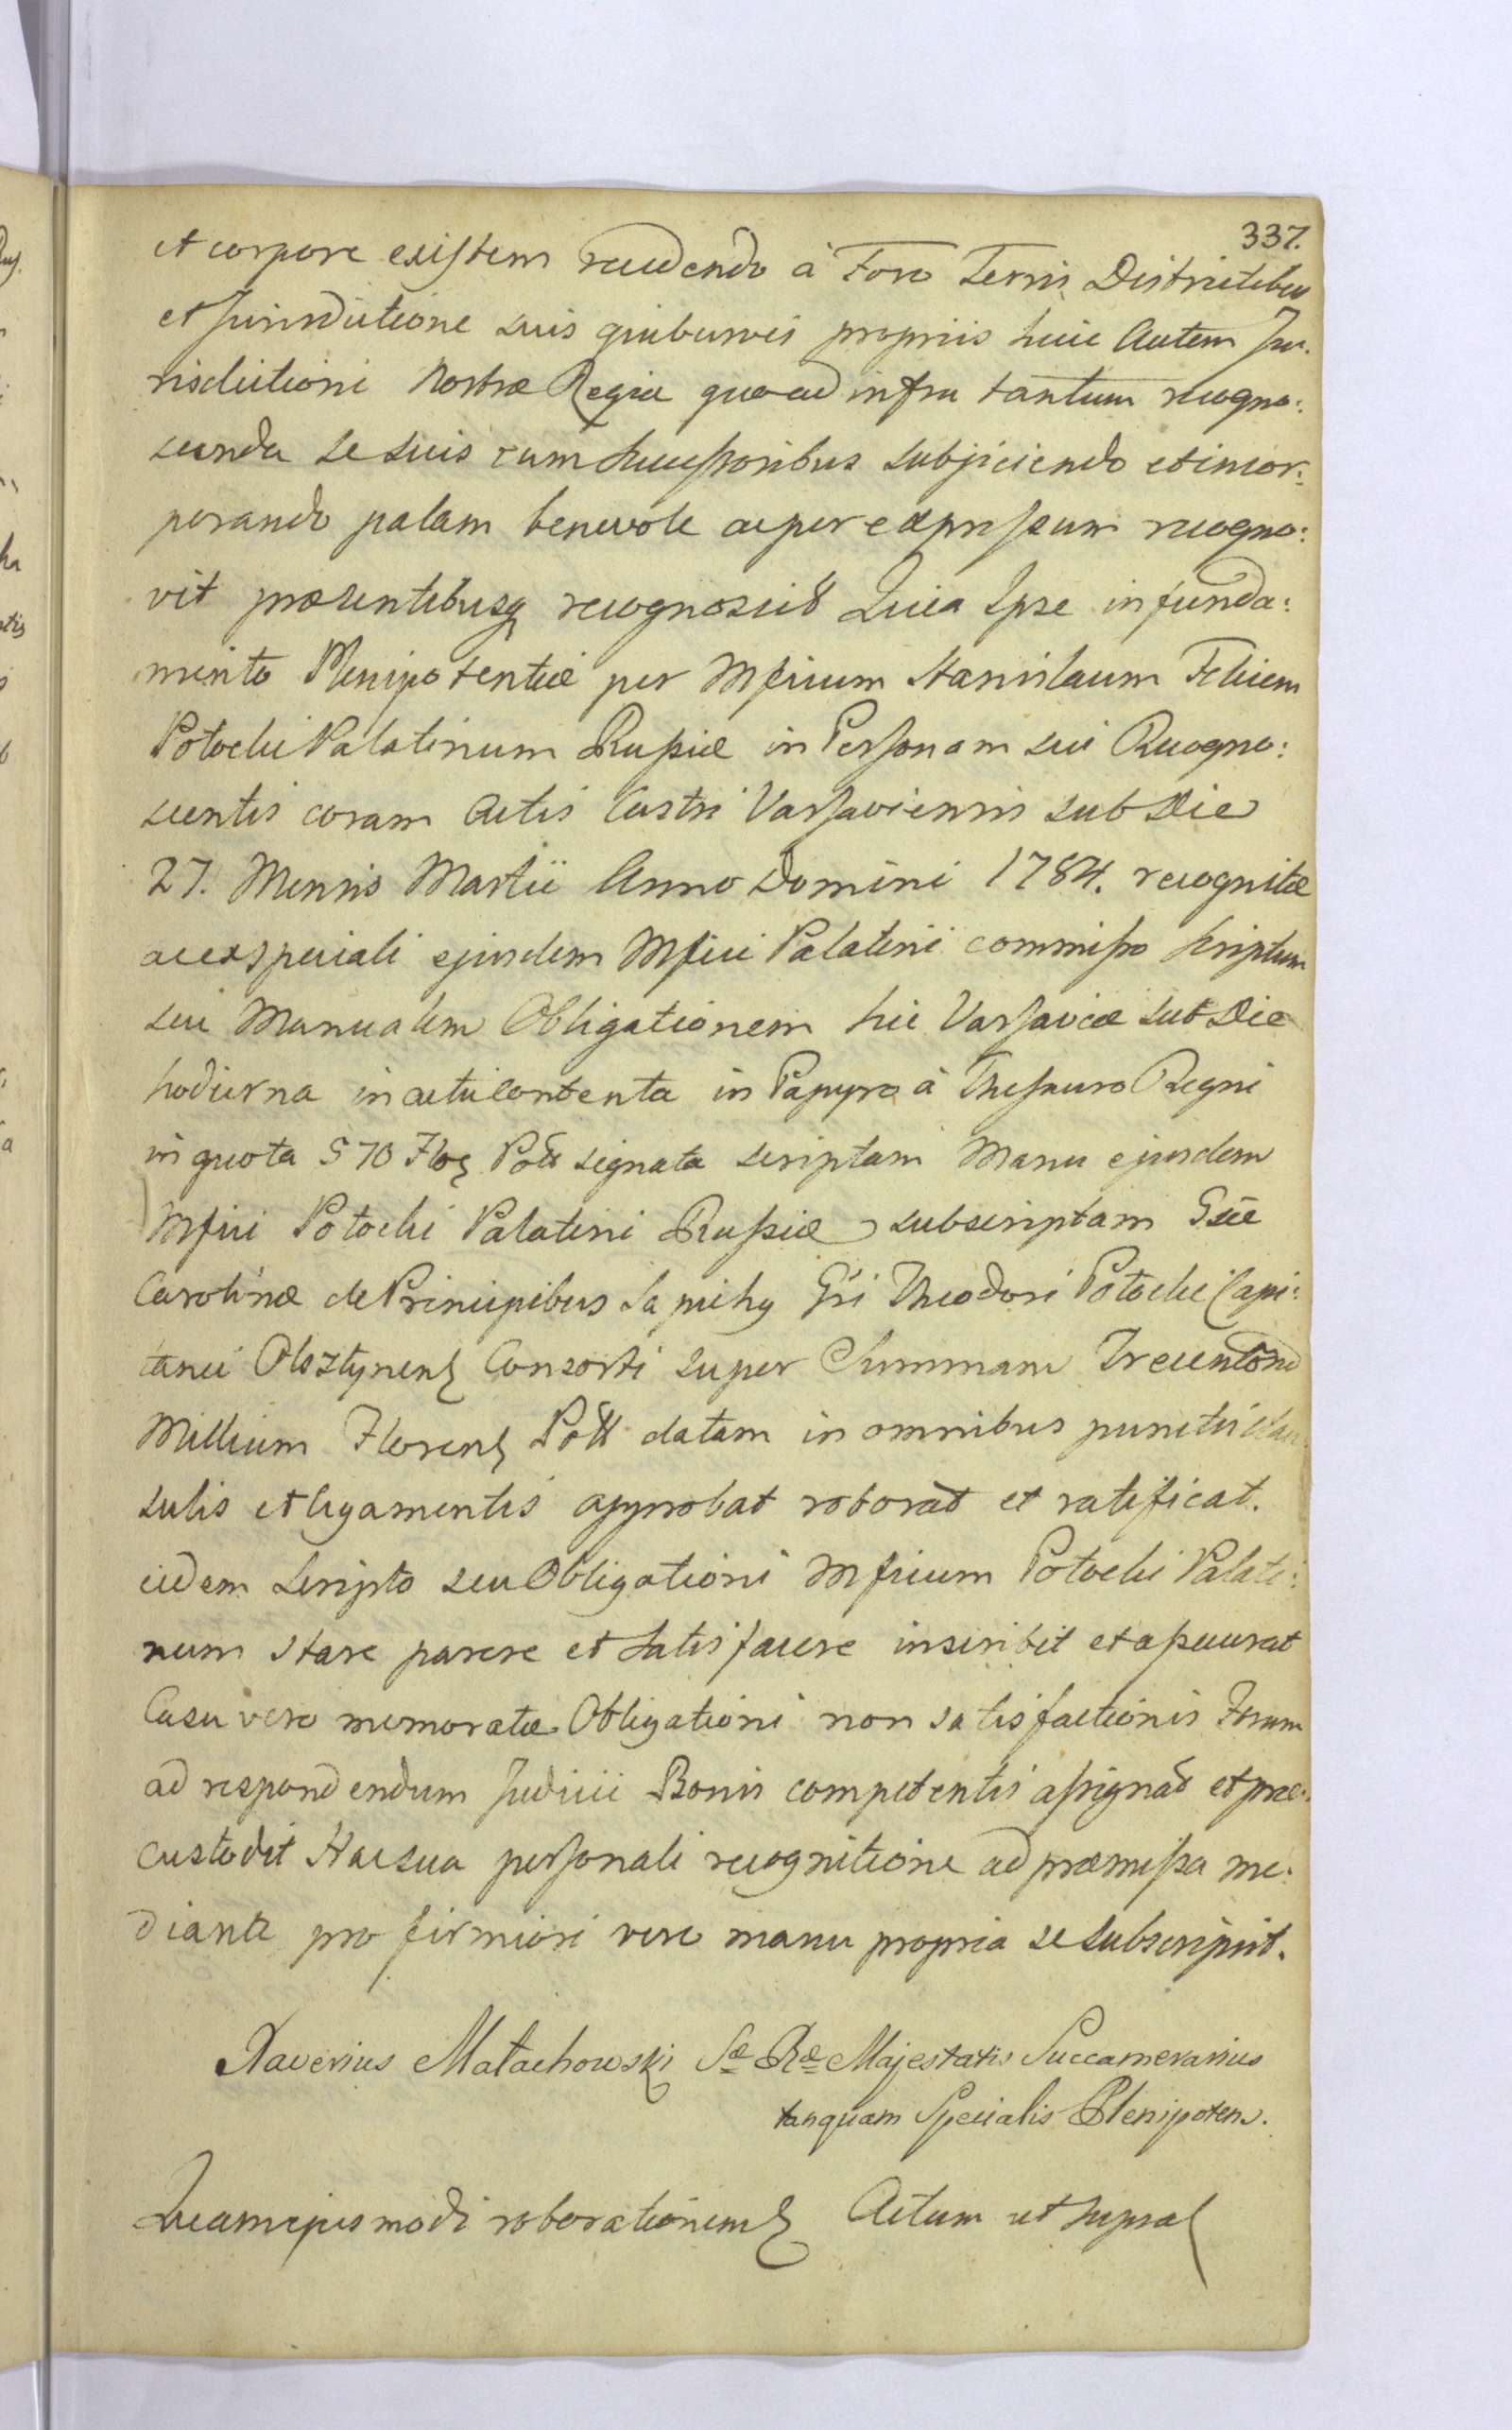 337.
et corpore existens recedendo à Foro Terris Districtibus
et Jurisdictione suis quibusvis propriis huic Autem Ju:
risdictioni Nostræ Regiæ quoad infra tantum recogno:
scenda se suis cum Successoribus subjiciendo et incor:
porando palam benevole ac per expressum recogno:
vit præsentibusq recognoscit Quia Ipse in funda:
mento Plenipotentiæ per Mficum Stanislaum Felicem
Potocki Palatinum Russiæ in Personam sui Recogno:
scentis coram Actis Castri Varsaviensis sub Die
27. Mensis Martii Anno Domini 1784. recognitæ
ac ex speciali ejusdem Mfici Palatini commisso scriptum
seu Manualem Obligationem hic Varsaviæ sub Die
hodierna in actu contenta in Papyro à Thesauro Regni
in quota 570 Flor Poll signata scriptam Manu ejusdem
Mfici Potocki Palatini Russiæ subscriptam Gsæ
Carolinæ de Principibus Sapiehy Gsi Theodori Potocki Capi:
tanei Olsztynens Consorti super Summam Trecentorum
Millium Floren Poll datam in omnibus punctis clau
sulis et ligamentis approbat roborat et ratificat.
eidem Scripto seu Obligationi Mficum Potocki Palati:
num stare parere et satisfacere inscribit et assecurat
Casu vero memoratæ Obligationi non satisfactionis Forum
ad respondendum Judicii Bonis competentis assignat et præ:
custodit Hac sua personali recognitione ad præmissa me:
diante pro firmiori vero manu propria se subscripsit.
Xaverius Małachowski Sæ Ræ Majestatis Succamerarius
tanquam Specialis Plenipotens.
Quam ejusmodi roborationem Actum ut supra